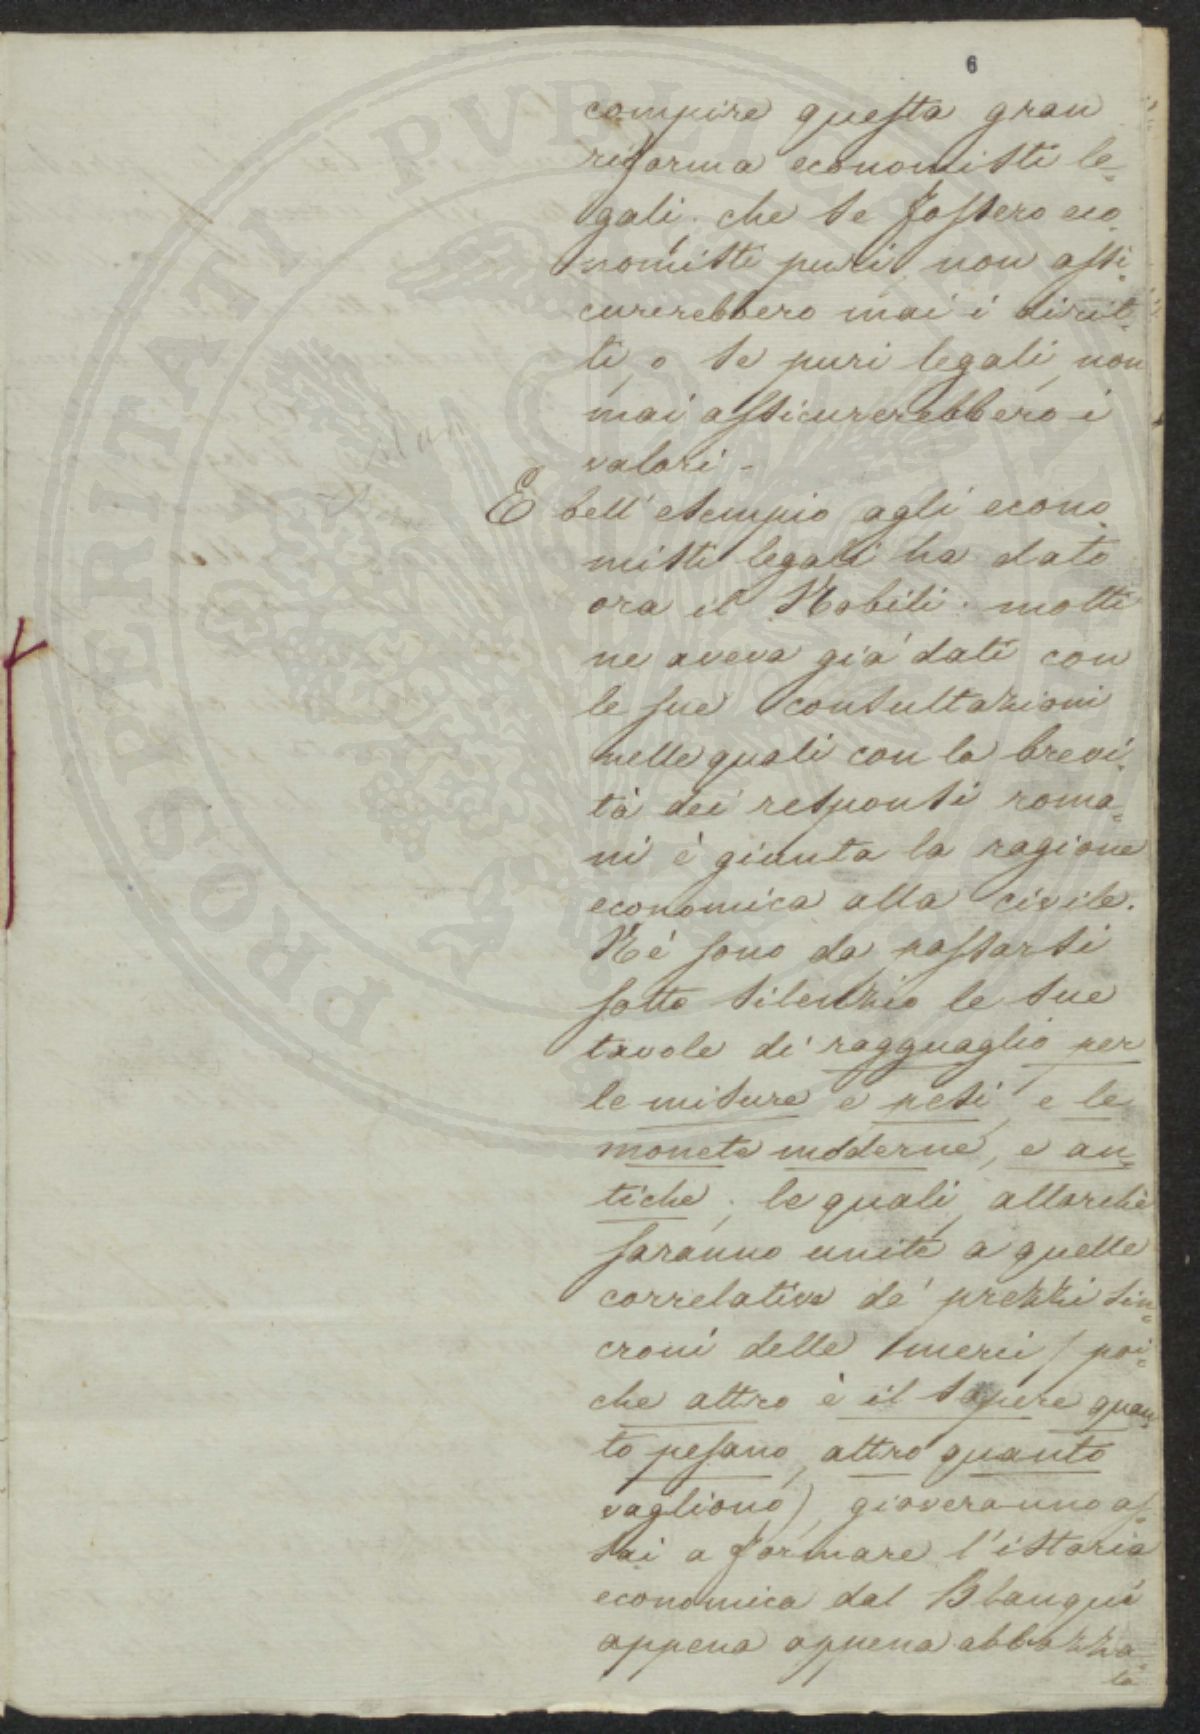 6
compire questa gran
riforma economisti le=
gali. che se fossero eco=
nomisti puri, non assi=
curerebbero mai i dirit=
ti, o se puri legali, non
mai assicurerebbero i
valori -
E bell'esempio agli econo=
misti legali ha dato
ora il Nobili. molti
ne aveva già dati con
le sue consultazioni
nelle quali con la brevi=
tà dei responsi roma=
ni è giunta la ragione
economica alla civile.
Nè sono da passarsi
sotto silenzio le sue
tavole di ragguaglio per
le misure e pesi, e le
monete moderne, e an=
tiche. le quali, allorchè
saranno unite a quelle
correlative de' prezzi sin=
croni delle merci (poi=
che altro è il sapere quan=
to pesano, altro quanto
vagliono), gioveranno as=
sai a formare l'istoria
economica dal Blanqui
appena appena abbozza=
ta
PROSPERITATI PVBLICAE